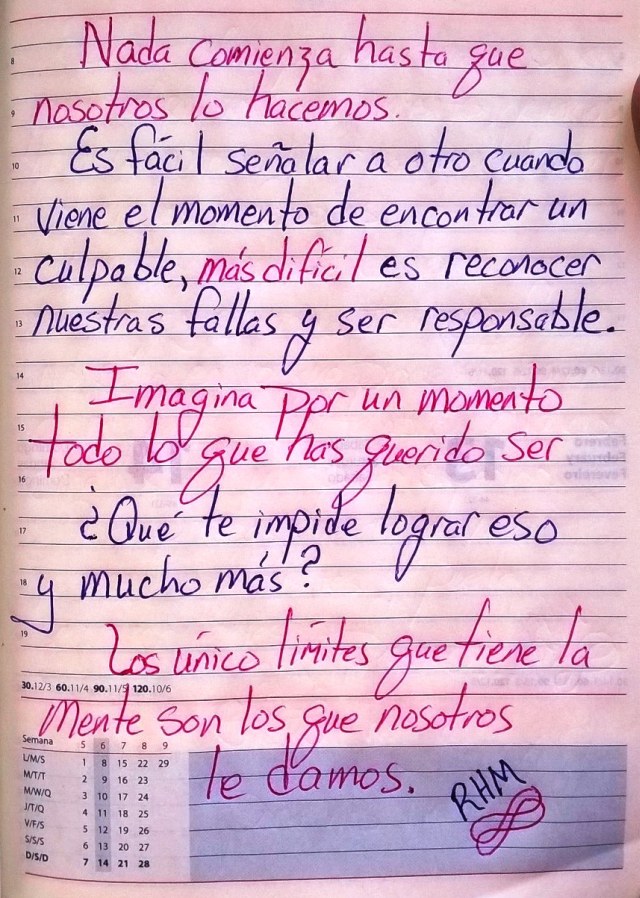 8
Nada comienza hasta que
9 nosotros lo hacemos.
10 Es fácil señalar a otro cuando
11 viene el momento de encontrar un
12 culpable, más difícil es reconocer
13 nuestras fallas y ser responsable.
14
Imagina por un momento
15
todo lo que has querido ser
16
17 ¿Qué te impide lograr eso
18 y mucho más?
19
Los único límites que tiene la
30.12/3 60.11/4 90.11/5 120.10/6
Mente son los que nosotros
le damos.
RHM
Semana 5 6 7 8 9
L/M/S 1 8 15 22 29
M/T/T 2 9 16 23
M/W/Q 3 10 17 24
J/T/Q 4 11 18 25
V/F/S 5 12 19 26
S/S/S 6 13 20 27
D/S/D 7 14 21 28